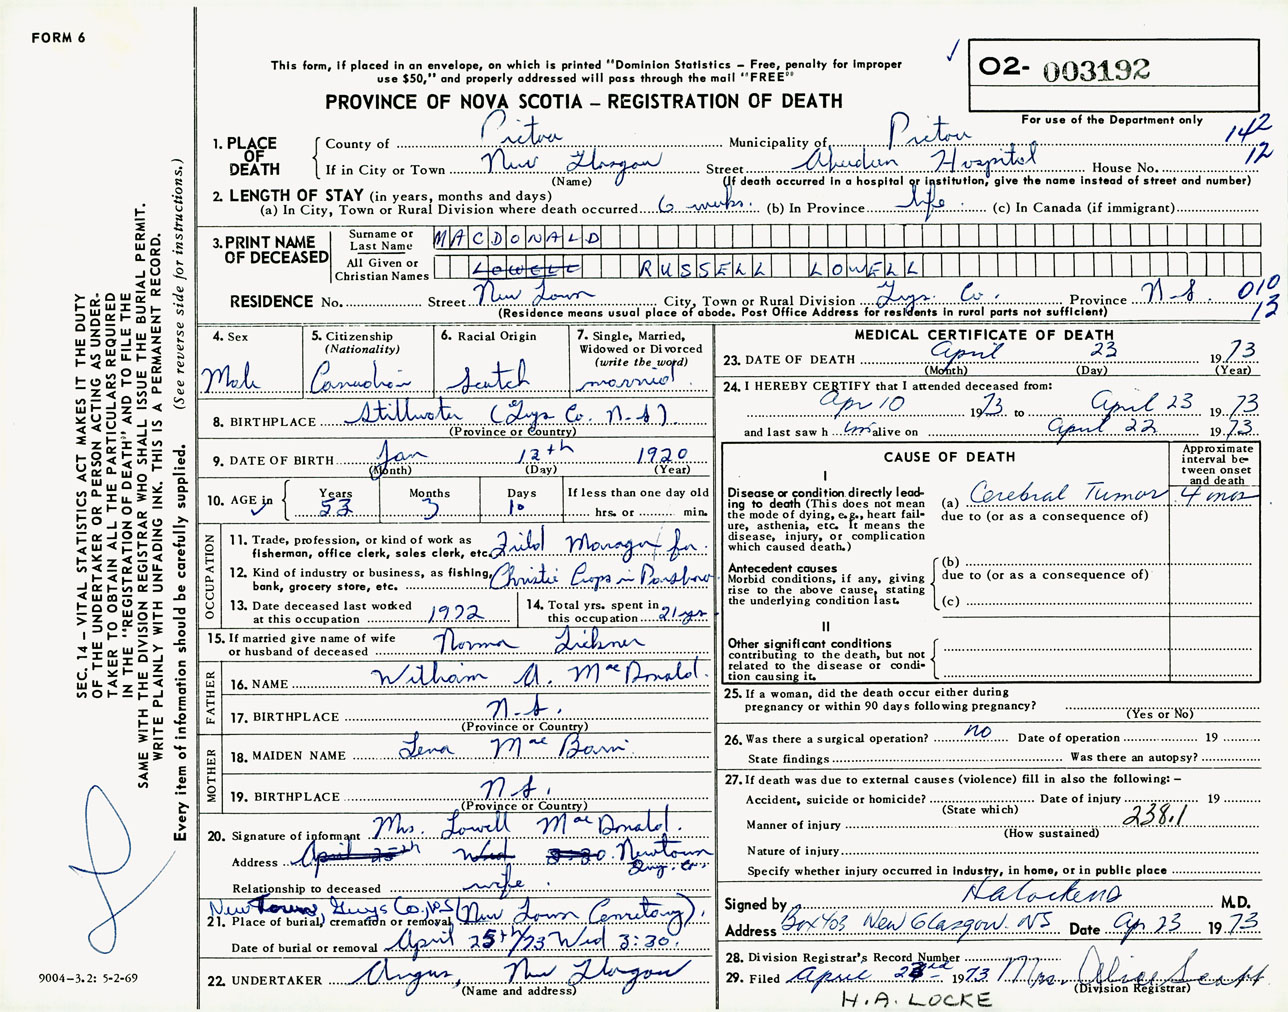 FORM 6
This form, if placed in an envelope, on which is printed "Dominion Statistics – Free, penalty for improper
use $50," and properly addressed will pass through the mail "FREE"
O2- 003192
For use of the Department only
PROVINCE OF NOVA SCOTIA – REGISTRATION OF DEATH
142
12
1. PLACE OF DEATH
County of Pictou Municipality of Pictou
If in City or Town New Glasgow Street Aberdeen Hospital House No.
(Name) (If death occurred in a hospital or institution, give the name instead of street and number)
2. LENGTH OF STAY (in years, months and days)
(a) In City, Town or Rural Division where death occurred 6 weeks. (b) In Province life (c) In Canada (if immigrant)
3. PRINT NAME OF DECEASED
Surname or Last Name MACDONALD
All Given or Christian Names LOWELL RUSSELL LOWELL
RESIDENCE No. Street New Town City, Town or Rural Division Guys. Co. Province N-S. 010
13
(Residence means usual place of abode. Post Office Address for residents in rural parts not sufficient)
4. Sex
Male
5. Citizenship
(Nationality)
Canadian
6. Racial Origin
Scotch
7. Single, Married,
Widowed or Divorced
(write the word)
married
8. BIRTHPLACE Stillwater (Guys Co. N-S)
(Province or Country)
9. DATE OF BIRTH Jan 12th 1920
(Month) (Day) (Year)
10. AGE in
Years 53
Months 3
Days 10
If less than one day old
hrs. or min.
OCCUPATION
11. Trade, profession, or kind of work as
fisherman, office clerk, sales clerk, etc. Field Manager for
12. Kind of industry or business, as fishing,
bank, grocery store, etc. Christie Crops in
13. Date deceased last worked
at this occupation 1972
14. Total yrs. spent in
this occupation 21 yrs
15. If married give name of wife
or husband of deceased Norma
FATHER
16. NAME William A. MacDonald.
17. BIRTHPLACE N-S.
(Province or Country)
MOTHER
18. MAIDEN NAME Lena Mac
19. BIRTHPLACE N S.
(Province or Country)
20. Signature of informant Mrs. Lowell MacDonald.
Address April 25th Wed 3:30. Newtown
Guy. Co.
Relationship to deceased wife.
New Town, Guys Co, NS (New Town Cemetary).
21. Place of burial, cremation or removal
Date of burial or removal April 25th/73 Wed 3:30.
22. UNDERTAKER Angus, New Glasgow
(Name and address)
MEDICAL CERTIFICATE OF DEATH
23. DATE OF DEATH April 23 1973
(Month) (Day) (Year)
24. I HEREBY CERTIFY that I attended deceased from:
Apr 10 1973 to April 23 1973
and last saw him alive on April 22 1973
CAUSE OF DEATH
Approximate
interval be-
tween onset
and death
I
Disease or condition directly lead-
ing to death (This does not mean
the mode of dying, e.g., heart fail-
ure, asthenia, etc. It means the
disease, injury, or complication
which caused death.)
(a) Cerebral Tumor 4 mos
due to (or as a consequence of)
Antecedent causes
Morbid conditions, if any, giving
rise to the above cause, stating
the underlying condition last.
(b)
due to (or as a consequence of)
(c)
II
Other significant conditions
contributing to the death, but not
related to the disease or condi-
tion causing it.
25. If a woman, did the death occur either during
pregnancy or within 90 days following pregnancy?
(Yes or No)
26. Was there a surgical operation? no Date of operation 19
State findings Was there an autopsy?
27. If death was due to external causes (violence) fill in also the following: –
Accident, suicide or homicide? Date of injury 19
(State which)
Manner of injury 238.1
(How sustained)
Nature of injury
Specify whether injury occurred in industry, in home, or in public place
Signed by M.D.
Address Box 403 New Glasgow. NS Date Ap 23 1973
28. Division Registrar's Record Number
29. Filed April 23rd 1973 Mrs. Alice
(Division Registrar)
H.A. LOCKE
SEC. 14 – VITAL STATISTICS ACT MAKES IT THE DUTY
OF THE UNDERTAKER OR PERSON ACTING AS UNDER-
TAKER TO OBTAIN ALL THE PARTICULARS REQUIRED
IN THE "REGISTRATION OF DEATH" AND TO FILE THE
SAME WITH THE DIVISION REGISTRAR WHO SHALL ISSUE THE BURIAL PERMIT.
WRITE PLAINLY WITH UNFADING INK. THIS IS A PERMANENT RECORD.
Every item of information should be carefully supplied. (See reverse side for instructions.)
9004–3.2: 5-2-69